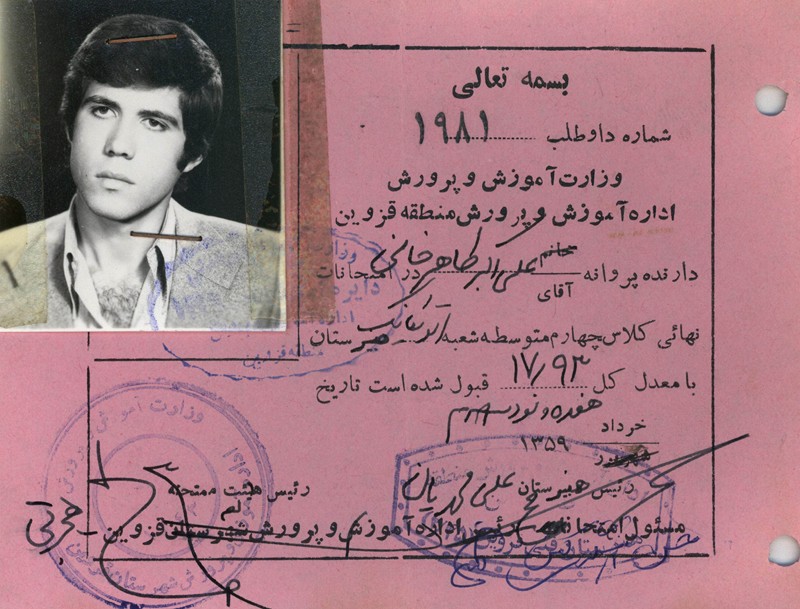 بسمه تعالی
شماره داوطلب ۱۹۸۱
وزارت آموزش و پرورش
اداره آموزش و پرورش منطقه قزوین
دارنده پروانه خانم آقای علی اکبر طاهرخانی در امتحانات
نهائی کلاس چهارم متوسطه شعبه اتومکانیک هنرستان
با معدل کل ۱۷/۹۳ قبول شده است تاریخ
هفده و نود سه صدم
خرداد
۱۳۵۹
شهریور
رئیس هنرستان علی مهریان
رئیس هیئت ممتحنه
مسئول امتحانات اداره آموزش و پرورش شهرستان قزوین
وزارت آموزش و پرورش